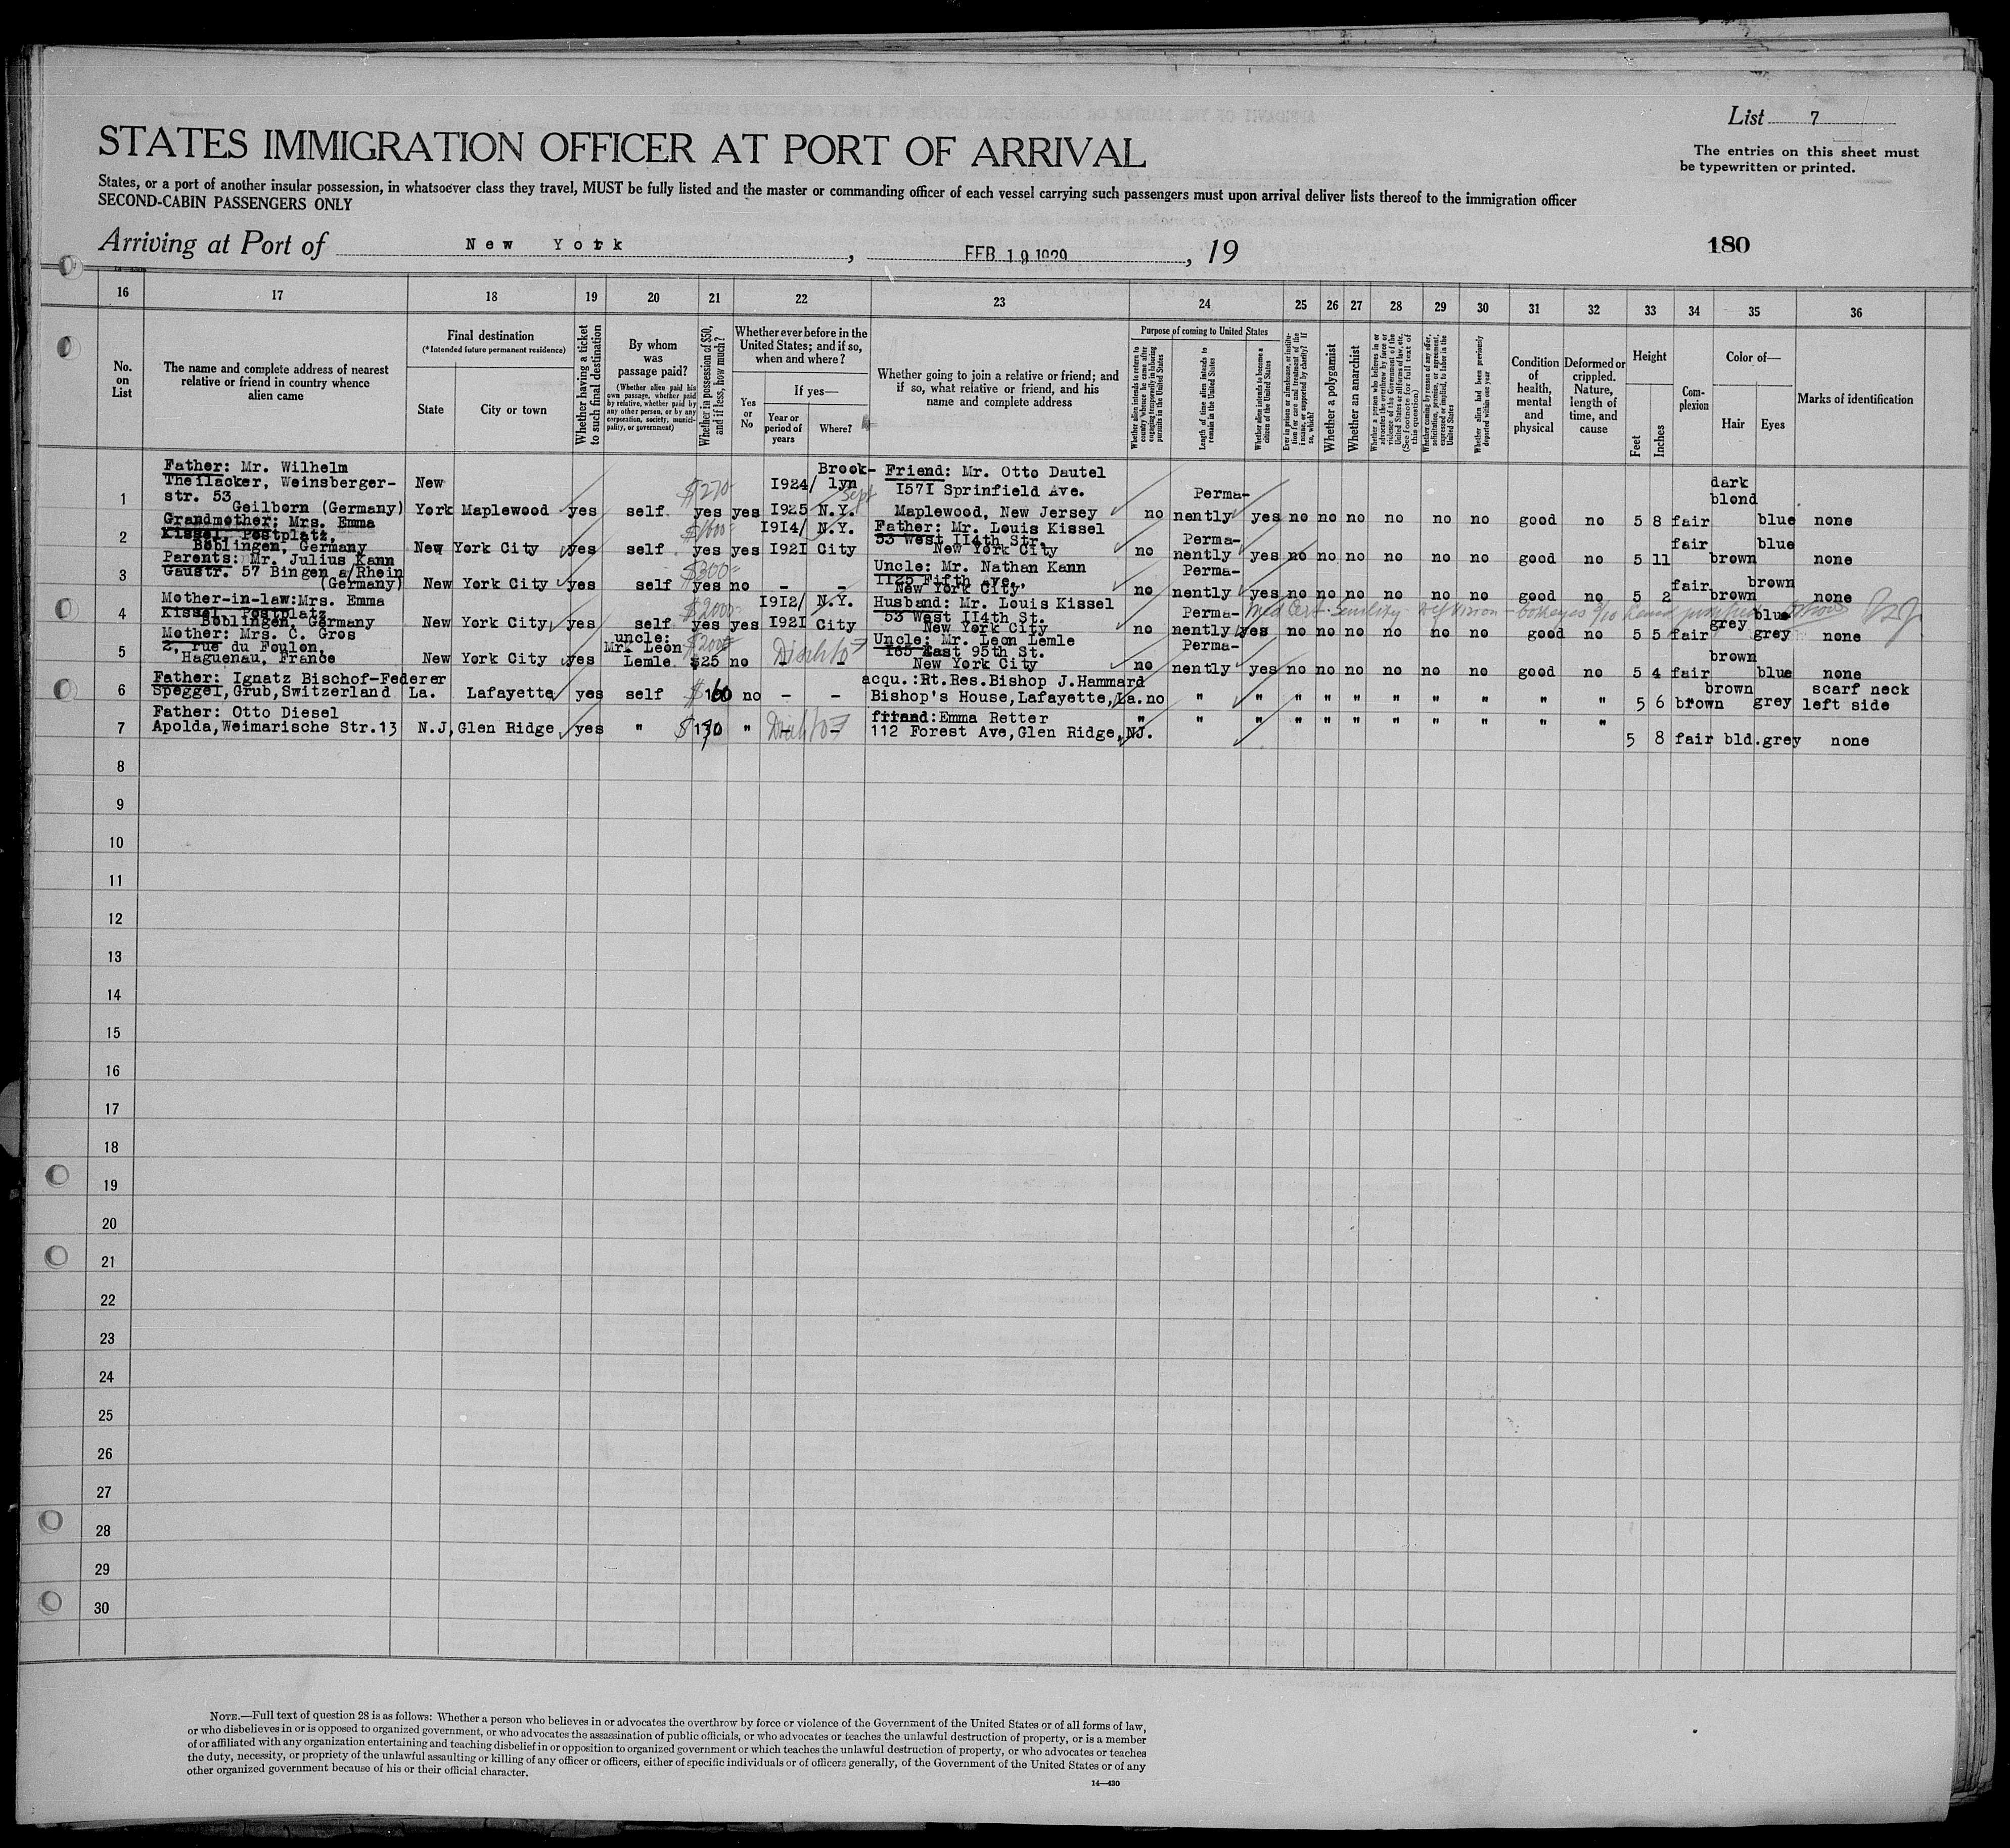 List 7
STATES IMMIGRATION OFFICER AT PORT OF ARRIVAL
The entries on this sheet must
be typewritten or printed.
States, or a port of another insular possession, in whatsoever class they travel, MUST be fully listed and the master or commanding officer of each vessel carrying such passengers must upon arrival deliver lists thereof to the immigration officer
SECOND-CABIN PASSENGERS ONLY
Arriving at Port of New York, FEB 19 1929, 19
180
16 17 18 19 20 21 22 23 24 25 26 27 28 29 30 31 32 33 34 35 36
No. on List
The name and complete address of nearest relative or friend in country whence alien came
Final destination
(*Intended future permanent residence)
State
City or town
Whether having a ticket to such final destination
By whom was passage paid?
(Whether alien paid his own passage, whether paid by relative, whether paid by any other person, or by any corporation, society, municipality, or government)
Whether in possession of $50, and if less, how much?
Whether ever before in the United States; and if so, when and where?
Yes or No
If yes—
Year or period of years
Where?
Whether going to join a relative or friend; and if so, what relative or friend, and his name and complete address
Purpose of coming to United States
Whether alien intends to return to country whence he came after engaging temporarily in laboring pursuits in the United States
Length of time alien intends to remain in the United States
Whether alien intends to become a citizen of the United States
Ever in prison or almshouse, or institution for care and treatment of the insane, or supported by charity? If so, which?
Whether a polygamist
Whether an anarchist
Whether a person who believes in or advocates the overthrow by force or violence of the Government of the United States or all forms of law, etc. (See footnote for full text of this question)
Whether coming by reason of any offer, solicitation, promise, or agreement, expressed or implied, to labor in the United States
Whether alien had been previously deported within one year
Condition of health, mental and physical
Deformed or crippled. Nature, length of time, and cause
Height
Feet
Inches
Complexion
Color of—
Hair
Eyes
Marks of identification
1 Father: Mr. Wilhelm Theilacker, Weinsberger-str. 53 Geilborn (Germany) New York Maplewood yes self $270 yes yes 1924/ 1925 Brooklyn Sept N.Y. Friend: Mr. Otto Dautel 1571 Sprinfield Ave. Maplewood, New Jersey no Perma-nently yes no no no no no no good no 5 8 fair dark blond blue none
2 Grandmother: Mrs. Emma Kissel, Postplatz, Böblingen, Germany New York City yes self $1600 yes yes 1914/ 1921 N.Y. City Father: Mr. Louis Kissel 53 West 114th Str. New York City no Perma-nently yes no no no no no no good no 5 11 fair brown blue none
3 Parents: Mr. Julius Kann Gaustr. 57 Bingen a/Rhein (Germany) New York City yes self $300 yes no - - Uncle: Mr. Nathan Kann 1125 Fifth Ave., New York City no Perma-nently yes no no no no no no good no 5 2 fair brown brown none
4 Mother-in-law: Mrs. Emma Kissel, Postplatz Böblingen, Germany New York City yes self $2000 yes yes 1912/ 1921 N.Y. City Husband: Mr. Louis Kissel 53 West 114th St. New York City no Perma-nently yes no no no no no no good no 5 5 fair grey blue grey none
Med Cert. Senility Def Vision - both eyes
5 Mother: Mrs. C. Gros 2, rue du Foulon, Haguenau, France New York City yes uncle: Mr. Leon Lemle $200 $25 no - - Uncle: Mr. Leon Lemle 165 East 95th St. New York City no Perma-nently yes no no no no no no good no 5 4 fair brown blue none
6 Father: Ignatz Bischof-Federer Speggel, Grub, Switzerland La. Lafayette yes self $100 no - - acqu.: Rt.Res.Bishop J.Hammard Bishop's House, Lafayette, La. no " " " " " " " " " " 5 6 brown brown grey scarf neck left side
7 Father: Otto Diesel Apolda, Weimarische Str.13 N.J, Glen Ridge yes " $130 " - - friend: Emma Retter 112 Forest Ave, Glen Ridge, NJ. " " " " " " " " " " " 5 8 fair bld. grey none
8
9
10
11
12
13
14
15
16
17
18
19
20
21
22
23
24
25
26
27
28
29
30
NOTE.—Full text of question 28 is as follows: Whether a person who believes in or advocates the overthrow by force or violence of the Government of the United States or of all forms of law,
or who disbelieves in or is opposed to organized government, or who advocates the assassination of public officials, or who advocates or teaches the unlawful destruction of property, or is a member
of or affiliated with any organization entertaining and teaching disbelief in or opposition to organized government or which teaches the unlawful destruction of property, or who advocates or teaches
the duty, necessity, or propriety of the unlawful assaulting or killing of any officer or officers, either of specific individuals or of officers generally, of the Government of the United States or of any
other organized government because of his or their official character.
14—430